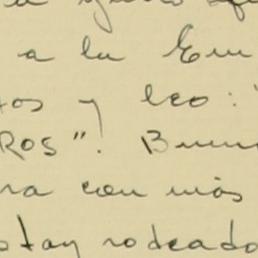 a la Em
os y leo: "
ROS"! Buen
ra con más
stay rodeado